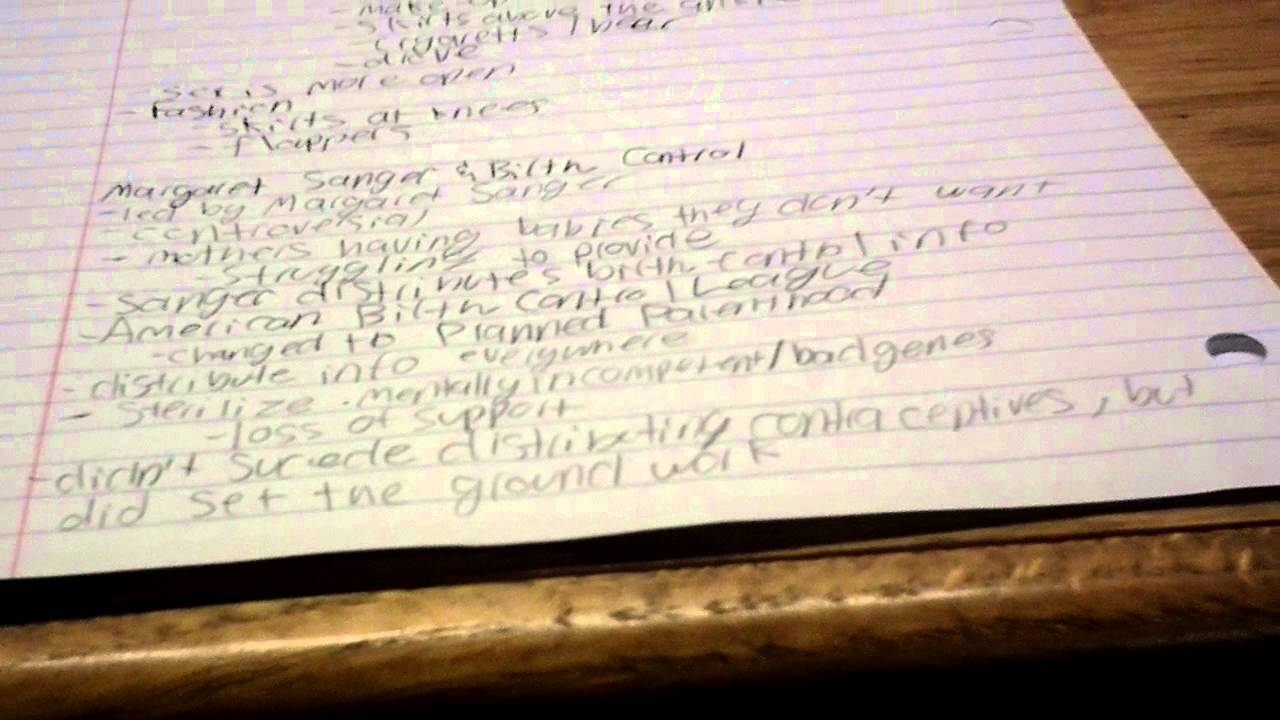 - make up
- skirts above the
- siggretts / bear
- drive
- sex is more open
- Fashion
- skirts at knees
- Flappers
Margaret Sanger & Birth Control
- led by Margaret Sanger
- controversial
- mothers having babies they don't want
- struggling to provide
- Sanger distributes birth control info
- American Birth Control League
- changed to Planned Parenthood
- distribute info everywhere
- Sterilize mentally incompetent/bad genes
- loss of support
- didn't succede distributing contraceptives, but
did set the ground work